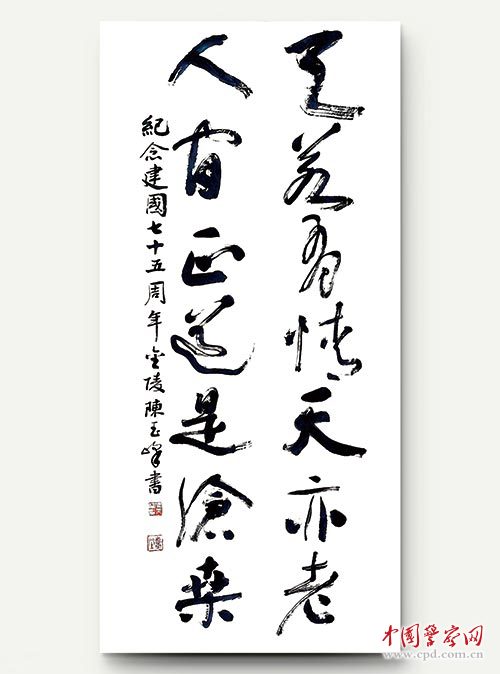 天若有情天亦老
人间正道是沧桑
紀念建國七十五周年金陵陳玉峰書
中国警察网
www.cpd.com.cn